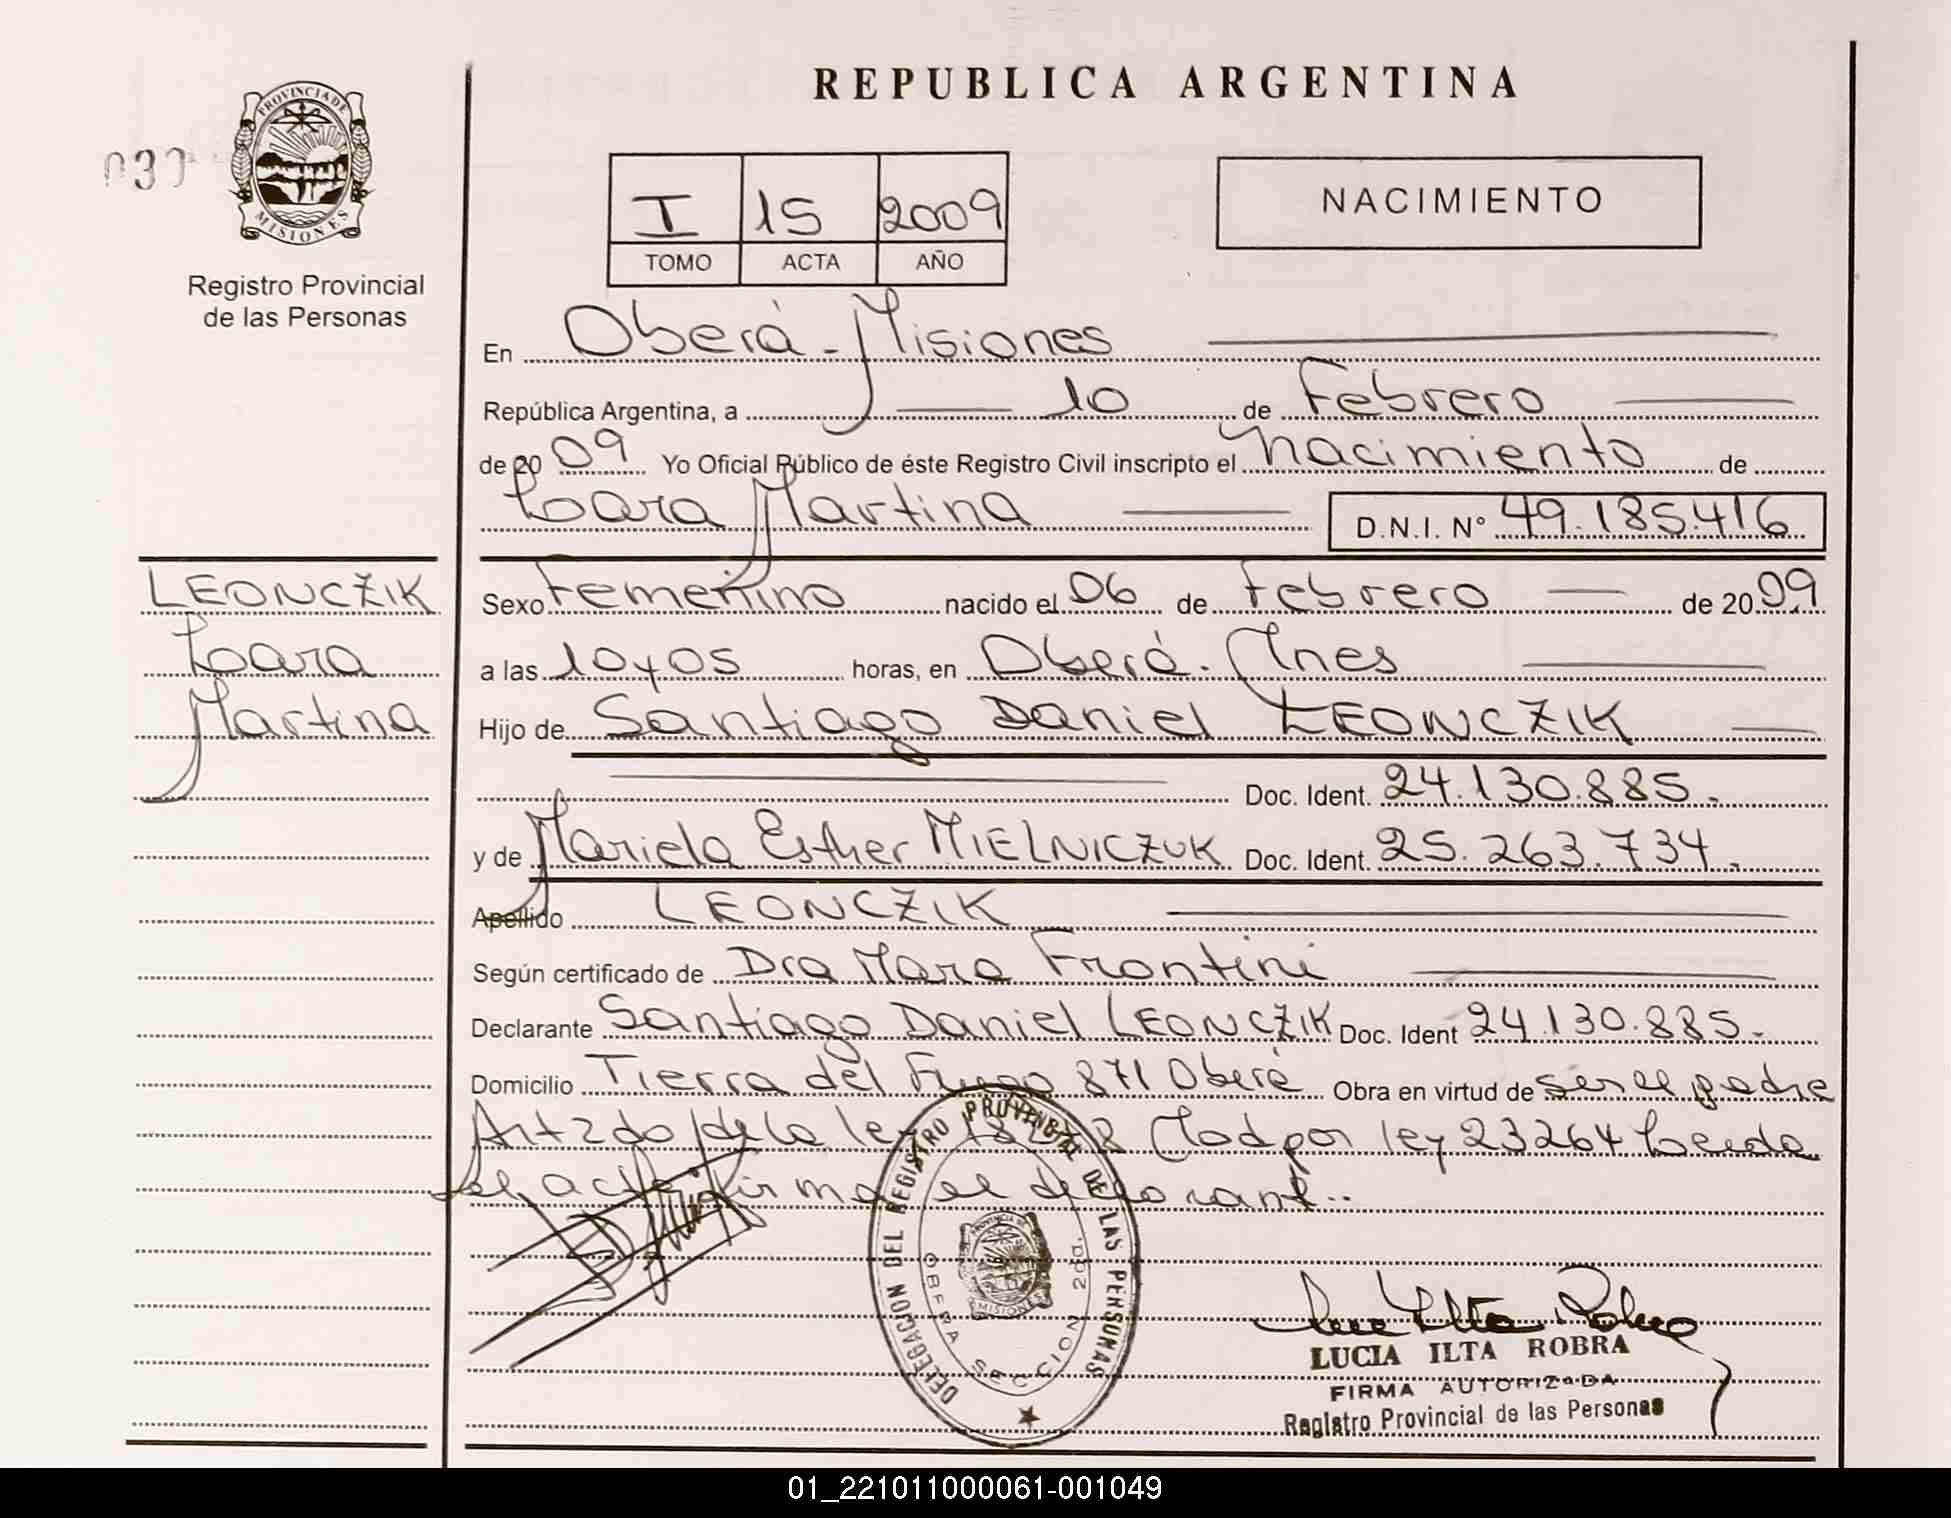 REPUBLICA ARGENTINA
PROVINCIA DE
MISIONES
037
Registro Provincial
de las Personas
I 15 2009
TOMO ACTA AÑO
NACIMIENTO
En Oberá - Misiones
República Argentina, a 10 de Febrero
de 20 09 Yo Oficial Público de éste Registro Civil inscripto el Nacimiento de
Loara Martina D.N.I. Nº 49.185.416
LEONCZIK
Loara
Martina
Sexo Femenino nacido el 06 de Febrero de 20 09
a las 10 y 05 horas, en Oberá. Mnes
Hijo de Santiago Daniel LEONCZIK
Doc. Ident. 24.130.885.
y de Mariela Esther MIELNICZUK Doc. Ident. 25.263.734.
Apellido LEONCZIK
Según certificado de Dra Mara Frontini
Declarante Santiago Daniel LEONCZIK Doc. Ident 24.130.885.
Domicilio Tierra del Fuego 871 Oberá Obra en virtud de ser el padre
Art 2do de la ley 18248 Mod por ley 23264 Leida
el acta firma el declarante..
DELEGACION DEL REGISTRO PROVINCIAL DE LAS PERSONAS
OBERA SECCION 2da.
PROVINCIA DE
MISIONES
LUCIA ILTA ROBRA
FIRMA AUTORIZADA
Registro Provincial de las Personas
01_221011000061-001049